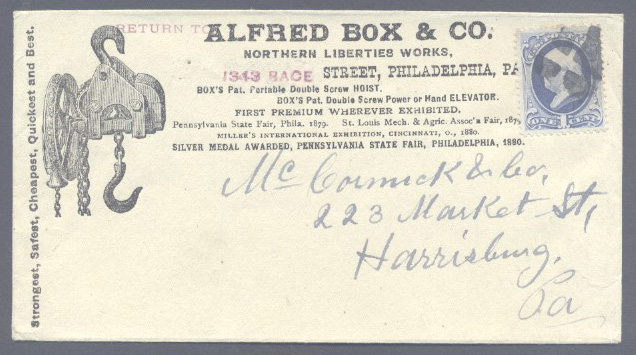 RETURN TO
ALFRED BOX & CO.
NORTHERN LIBERTIES WORKS,
1343 RACE STREET, PHILADELPHIA, PA
BOX'S Pat. Portable Double Screw HOIST.
BOX'S Pat. Double Screw Power or Hand ELEVATOR.
FIRST PREMIUM WHEREVER EXHIBITED.
Pennsylvania State Fair, Phila. 1879. St. Louis Mech. & Agric. Assoc'n Fair, 1879
MILLER'S INTERNATIONAL EXHIBITION, CINCINNATI, O., 1880.
SILVER MEDAL AWARDED, PENNSYLVANIA STATE FAIR, PHILADELPHIA, 1880.
Strongest, Safest, Cheapest, Quickest and Best.
McCormick & Co.
223 Market St,
Harrisburg,
Pa
ONE CENT